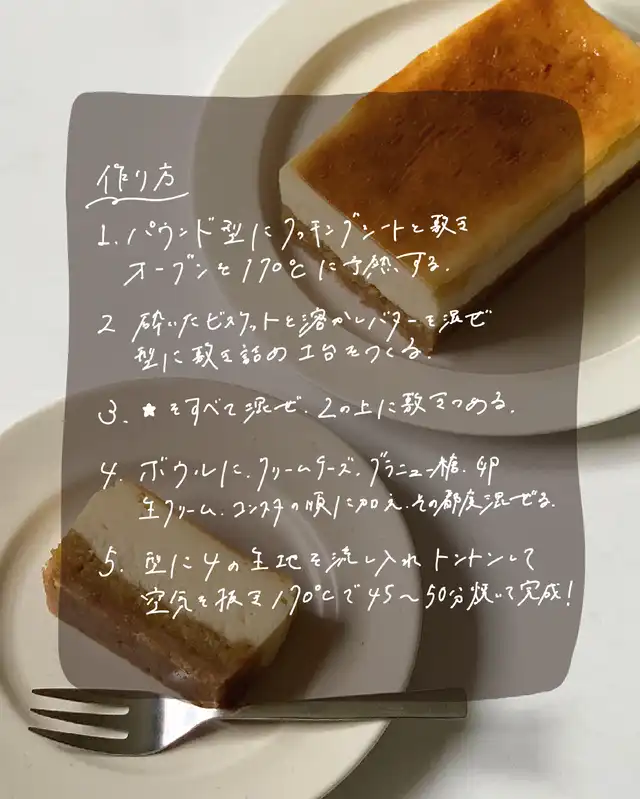 作り方
1. パウンド型にクッキングシートを敷き
オーブンを170℃に予熱する.
2 砕いたビスケットと溶かしバターを混ぜ
型に敷き詰め土台をつくる.
3. ★をすべて混ぜ、2の上に敷きつめる.
4. ボウルに、クリームチーズ、グラニュー糖、卵
生クリーム、コンスタの順に加え、その都度混ぜる.
5. 型に4の生地を流し入れ トントンして
空気を抜き170℃で45〜50分焼いて完成!